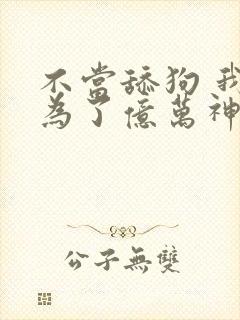 不當舔狗 我
為了億萬神
公子無雙